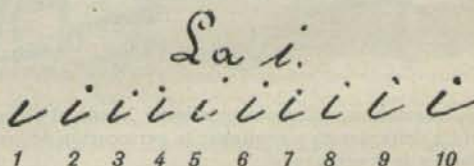 La i.
i i i i i i i i i i
1 2 3 4 5 6 7 8 9 10